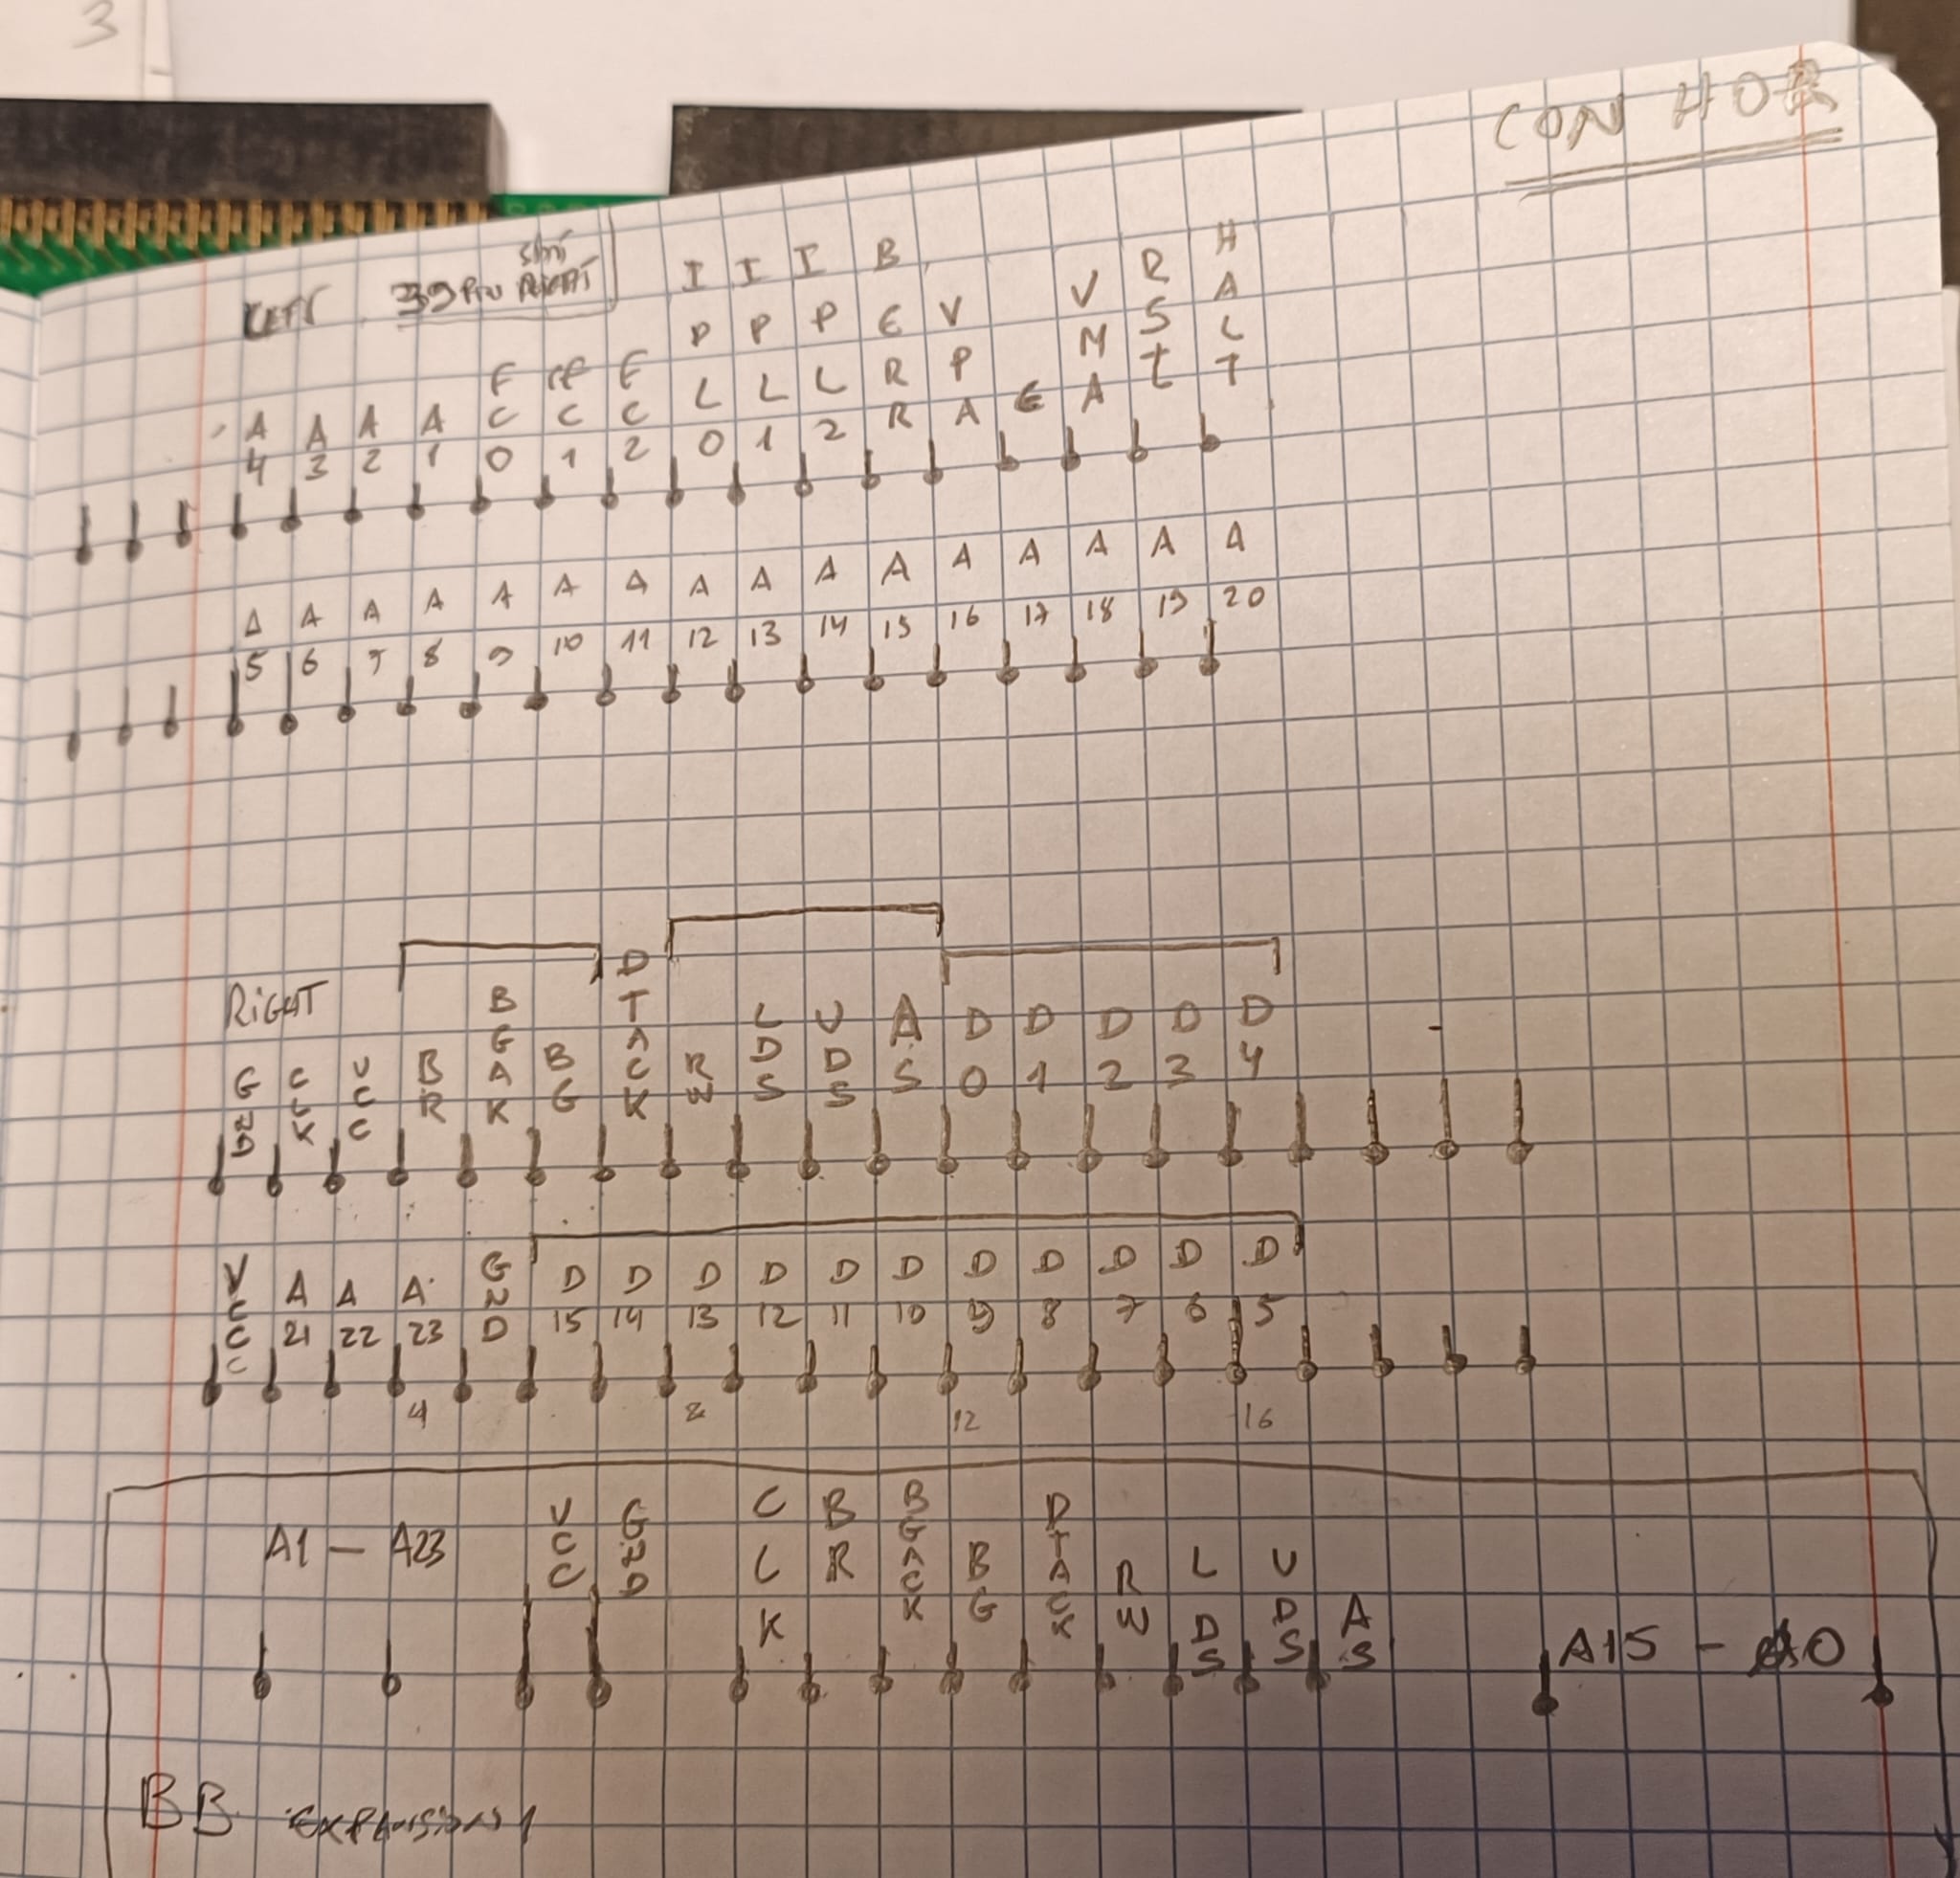 3
CON HOR
LEFT 39 PIN
A4 A3 A2 A1 FC0 FC1 FC2 IPL0 IPL1 IPL2 BERR VPA E VMA RST HALT
A5 A6 A7 A8 A9 A10 A11 A12 A13 A14 A15 A16 A17 A18 A19 A20
RIGHT
GND CLK VCC BR BGAK BG DTACK RW LDS UDS AS D0 D1 D2 D3 D4
VCC A21 A22 A23 GND D15 D14 D13 D12 D11 D10 D9 D8 D7 D6 D5
4 8 12 16
A1 — A23 VCC GND CLK BR BGACK BG DTACK RW LDS UDS AS A15 - A0
BB EXPANSION 1